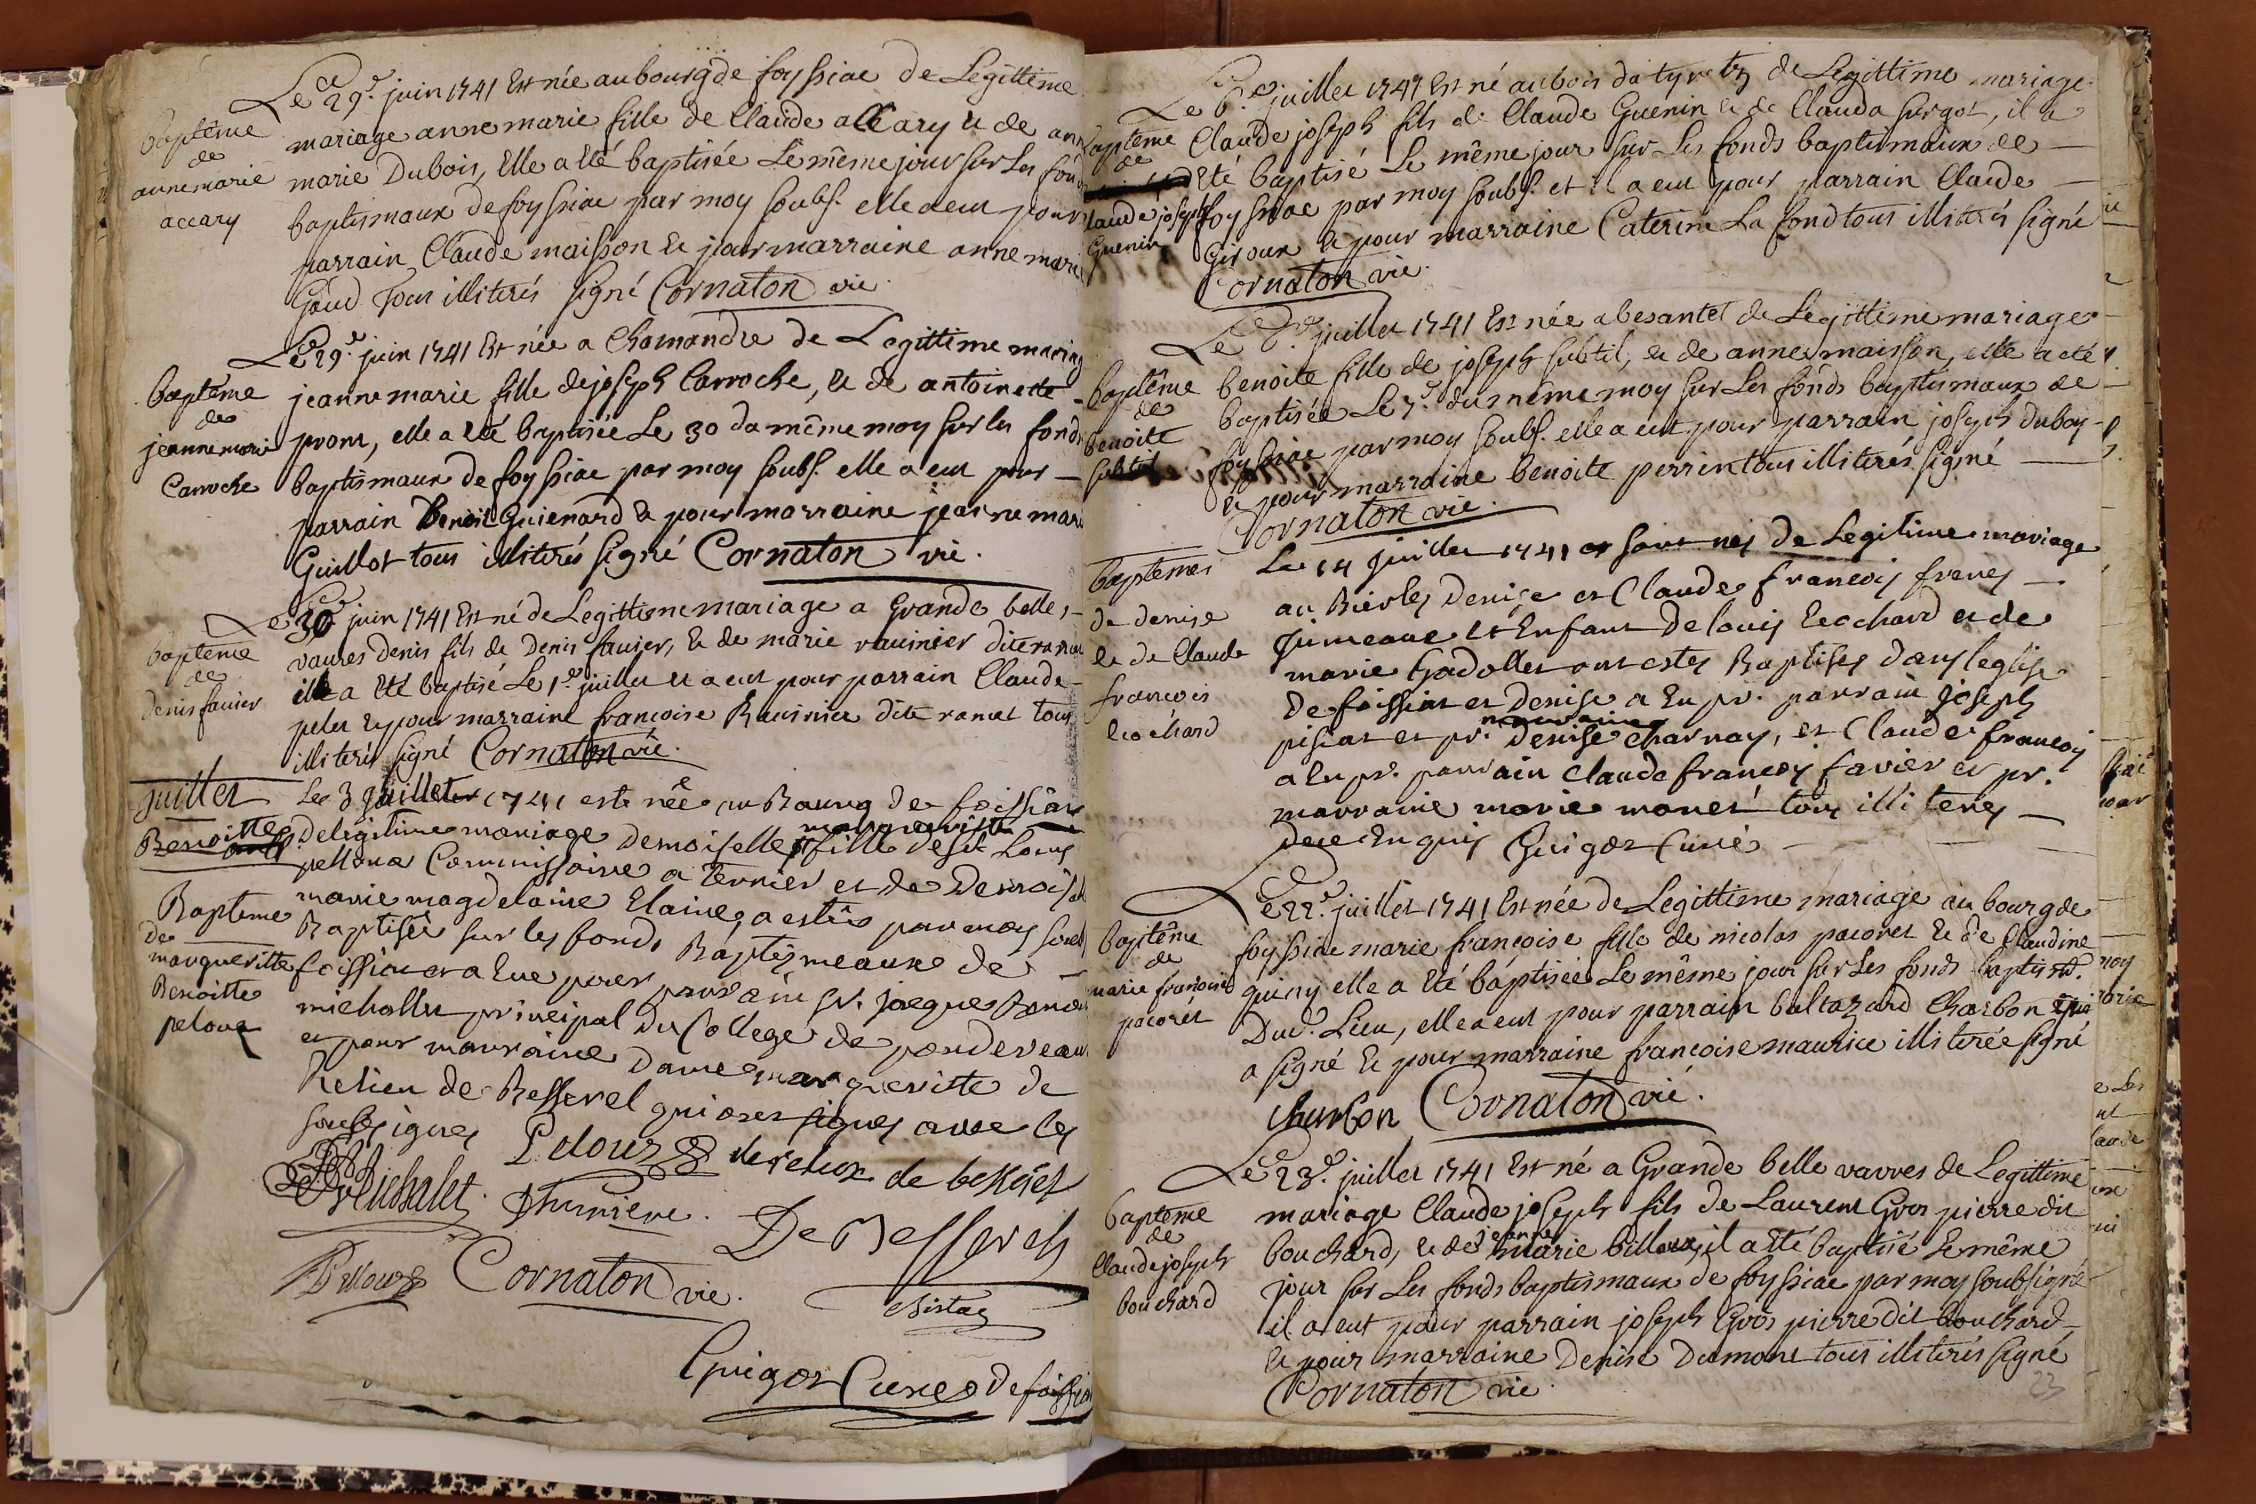 Le 29e. juin 1741 Est née au bourg de foyssiac de Legittime
mariage anne marie fille de Claude accary & de ann
marie Dubois, Elle a été baptisée Le même jour sur Les fon
baptismaux de foyssiac par moy soubs. elle a eut pour
parrain Claude maisson & pour marraine anne marie
Goud Tous illiterés signé Cornaton vic.
baptême
de
anne marie
accary
Le 29e. juin 1741 Est née a Chamandre de Legittime mariag
jeanne marie fille de joseph Carroche, & de antoinette
pront, elle a été baptisée Le 30 du même moy sur les fonds
baptismaux de foyssiac par moy soubs. elle a eut pour
parrain Benoit Guienard & pour marraine jeanne mari
Guillot tous illiterés signé Cornaton vic.
baptême
de
jeanne marie
Carroche
Le 30e juin 1741 Est né de Legittime mariage a Grande belles
vavres Denis fils de Denis favier, & de marie ravinier dite
il a été baptisé Le 1er juillet & a eut pour parrain Claude
pelu & pour marraine françoise Ravinier dite ramel tous
illiterés signé Cornaton vic.
baptême
de
Denis favier
juillet
Le 3 juillet 1741 est née au Bourg de foissia
De legitime mariage Demoiselle margueritte fille de Sr Louis
pelloux Commissaire a terrier et de Demois
marie magdelaine Elaine, a estée par moy
Baptisée sur les fonds Baptismeaux de
foissia et a Eue pour parrain Sr. jacque
michallet principal Du College de pondeveaux
et pour marraine Dame margueritte de
Relieu de Besserel qui ont signés avec les
soubsignes
Benoitte
Bapteme
de
margueritte
Benoitte
peloux
Pelouz de relieux de besserel
Michalet
De Besserel
Cornaton vic.
Guigoz Curé de foissia
Le 6e. juillet 1741 Est né au bois de Legittime mariage
Claude joseph fils de Claude Guenin & de Clauda surgot, il a
été baptisé Le même jour sur Les fonds baptismaux de
foyssiac par moy soubs. et il a eut pour parrain Claude
Giroux & pour marraine Caterine La fond tous illiterés signé
Cornaton vic.
baptême
de
Claude joseph
Guenin
Le 6e. juillet 1741 Est née a besantet de Legittime mariage
benoite fille de joseph subtil, & de anne maisson, elle a été
baptisée Le 7e. du même moy sur Les fonds baptismaux de
foyssiac par moy soubs. elle a eut pour parrain joseph duboy
& pour marraine benoite perrin tous illiterés signé
Cornaton vic.
baptême
de
benoite
subtil
Le 14 juillet 1741 sont nes de Legitime mariage
au Denise et Claude françois freres
jumeaux et Enfant De louis Cochard et de
marie Gadollet ont estes Baptises dans leglise
De foissiat et Denise a Eu pr. parrain joseph
pisiat et pr. marraine Denise charnay, et Claude françois
a Eu pr. parrain Claude françois favier et pr.
marraine marie monet tous illiteres
de ce Enquis Guigoz Curé
baptemes
de denise
& de Claude
françois
cochard
Le 22e. juillet 1741 Est née de Legittime mariage au bourg de
foyssiac marie françoise fille de nicolas pacoret & de Claudine
quiny elle a été baptisée Le même jour sur Les fonds baptis
Dud. Lieu, elle a eut pour parrain baltazard Charbon qui
a signé & pour marraine françoise maurice illiterée signé
Charbon Cornaton vic.
baptême
de
marie françoise
pacoret
Le 23e. juillet 1741 Est né a Grande belle vavres de Legittime
mariage Claude joseph fils de Laurent Gros pierre dit
bouchard, & de jeanne marie billoux, il a été baptisé Le même
jour sur Les fonds baptismaux de foyssiac par moy soubsigné
il a eut pour parrain joseph Gros pierre dit bouchard
& pour marraine Denise Dumont tous illiterés signé
Cornaton vic.
baptême
de
Claude joseph
bouchard
23